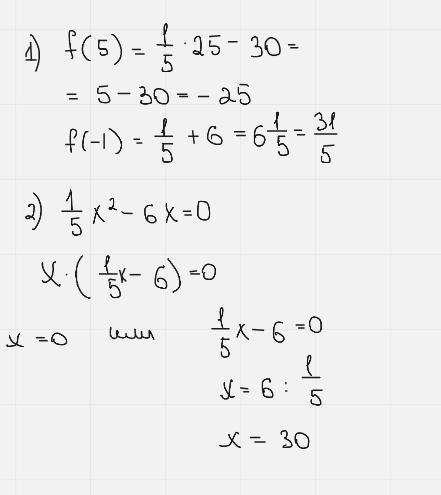 1) f(5) = 1/5 · 25 - 30 =
= 5 - 30 = - 25
f(-1) = 1/5 + 6 = 6 1/5 = 31/5
2) 1/5 x² - 6x = 0
x · (1/5 x - 6) = 0
x = 0 или 1/5 x - 6 = 0
x = 6 : 1/5
x = 30